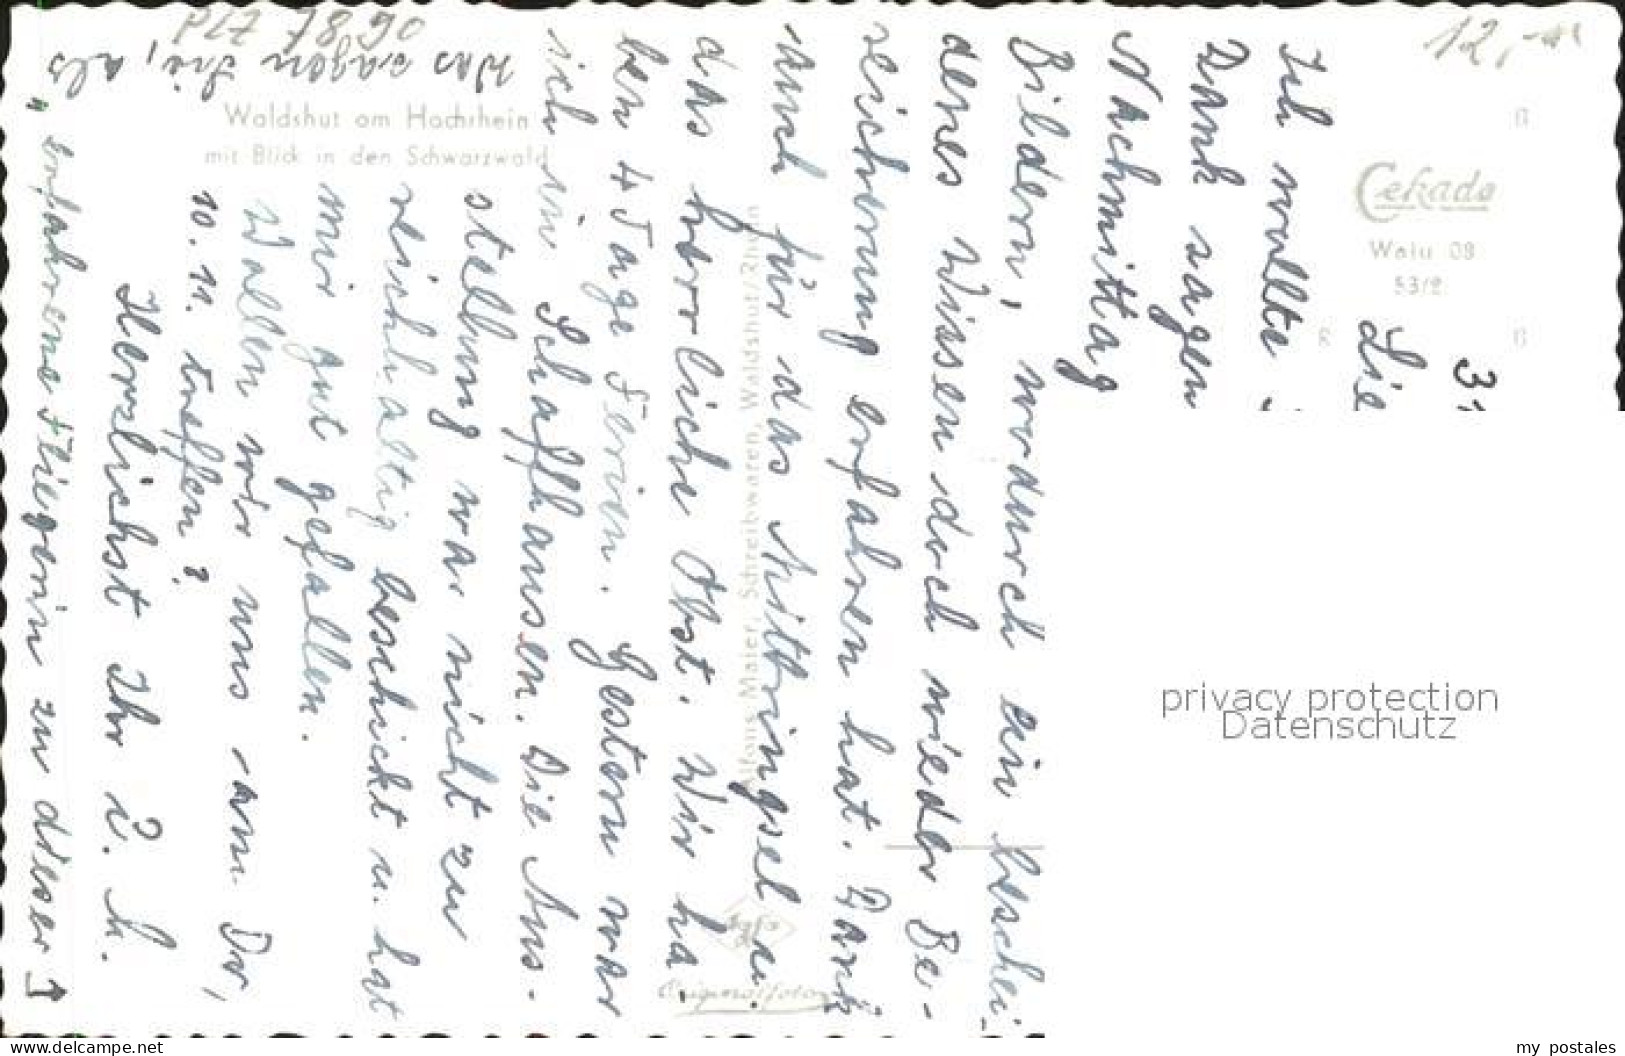 PLZ 7890
12,-
Waldshut am Hochrhein
mit Blick in den Schwarzwald
Cekade
Walu 08
53/2
Alfons Maier, Schreibwaren, Waldshut/Rhein
Agfa
Originalfoto
31
Lie
Ich wollte
Dank sagen
Nachmittag
Bildern, wodurch ein beschei-
denes Wissen doch wieder Be-
reicherung erfahren hat. Dank
auch für das Mitbringsel u.
das herrliche Obst. Wir ha-
ben 4 Tage Ferien. Gestern war
ich in Schaffhausen. Die Aus-
stellung war nicht zu
reichhaltig beschickt u. hat
mir gut gefallen.
Wollen wir uns am Do,
10.11. treffen?
Herzlichst Ihr
Was sagen Sie, als
"erfahrene Fliegerin zu dieser
privacy protection
Datenschutz
www.delcampe.net
my_postales